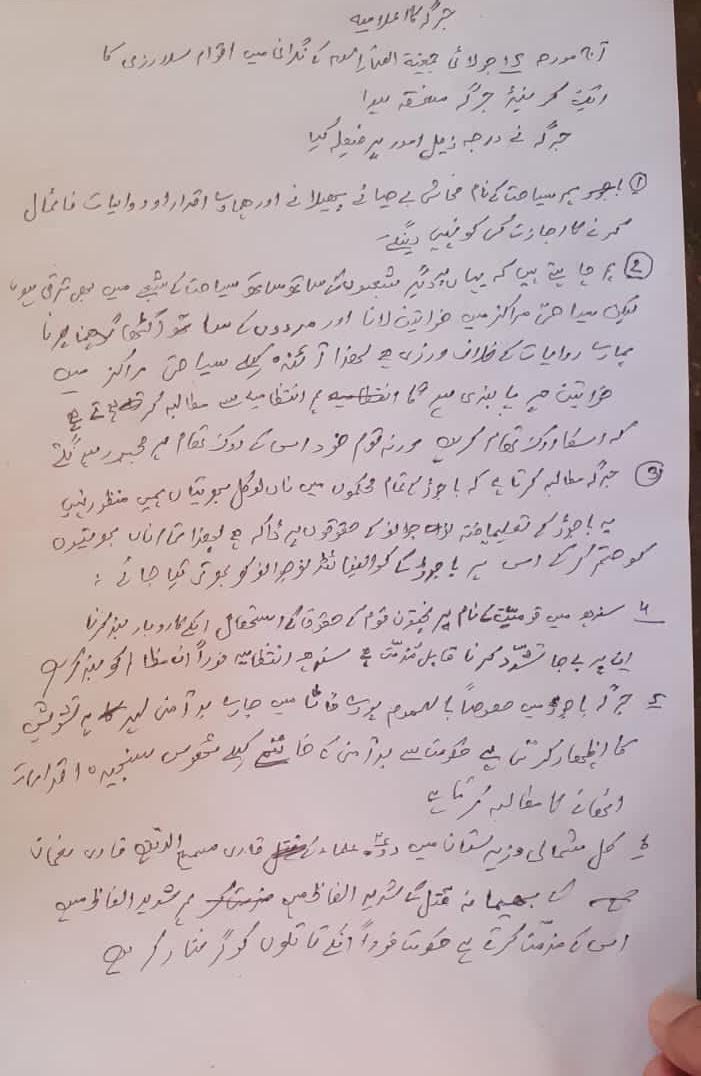 جرگہ کا اعلامیہ
آج مورخہ 15 جولائی جمیعۃ العلماء اسلام کے نگرانی میں اقوام سلارزی کا
ایک گرینڈ جرگہ منعقد ہوا
جرگہ نے درجہ ذیل امور پر فیصلہ کیا
① باجوڑ میں سیاحت کے نام فحاشی بے حیائے پھیلانے اور ہمارے اقدار اور روایات پائمال
کرنے کا اجازت کسی کو نہیں دینگے
② ہم چاہتے ہیں کہ یہاں پہ دیگر شعبوں کے ساتھ ساتھ سیاحت کے شعبے میں بھی ترقی ہو
لیکن سیاحتی مراکز میں خواتین لانا اور مردوں کے ساتھ اکٹھا گھومنا پھرنا
ہمارے روایات کے خلاف ورزی ہے لھذا آئندہ کیلے سیاحتی مراکز میں
خواتین پر پابندی ہوگا ہم انتظامیہ سے مطالبہ کرتے ہے
کہ اسکا روک تھام کریں ورنہ قوم خود اس کے روک تھام پر مجبور ہونگے
③ جرگہ مطالبہ کرتا ہے کہ باجوڑ کے تمام محکموں میں نان لوکل بھرتیاں ہمیں منظور نہیں
یہ باجوڑ کے تعلیم یافتہ نوجوانوں کے حقوقوں پر ڈاکہ ہے لھذا تمام نان بھرتیوں
کو ختم کر کے اس پر باجوڑ کے کوالیفائڈ نوجوانو کو بھرتی کیا جائے :
۴ سندھ میں قومیت کے نام پر پختون قوم کے حقوق کے استحصال انکے کاروبار بند کرنا
ان پر بے جا تشدّد کرنا قابل مذمّت ہے سندھ انتظامیہ فوراً ان مظالم کو بند کریں
۵ جرگہ باجوڑ میں خصوصاً بالعموم پورے فاٹا میں جاری بدآمنی لہر پہ تشویش
کا اظہار کرتی ہے حکومت سے بدآمنی کے خاتمے کیلے ٹھوس سنجیدہ اقدامات
اٹھانے کا مطالبہ کرتا ہے
۶ کل شمالی وزیرستان میں دو علماء کے قاری سمیع الدین قاری نعمان
کے بہیمانہ قتل کے شدید الفاظ میں ہم شدید الفاظ میں
اس کے مذمّت کرتے ہے حکومت فوراً انکے قاتلوں کو گرفتار کرے